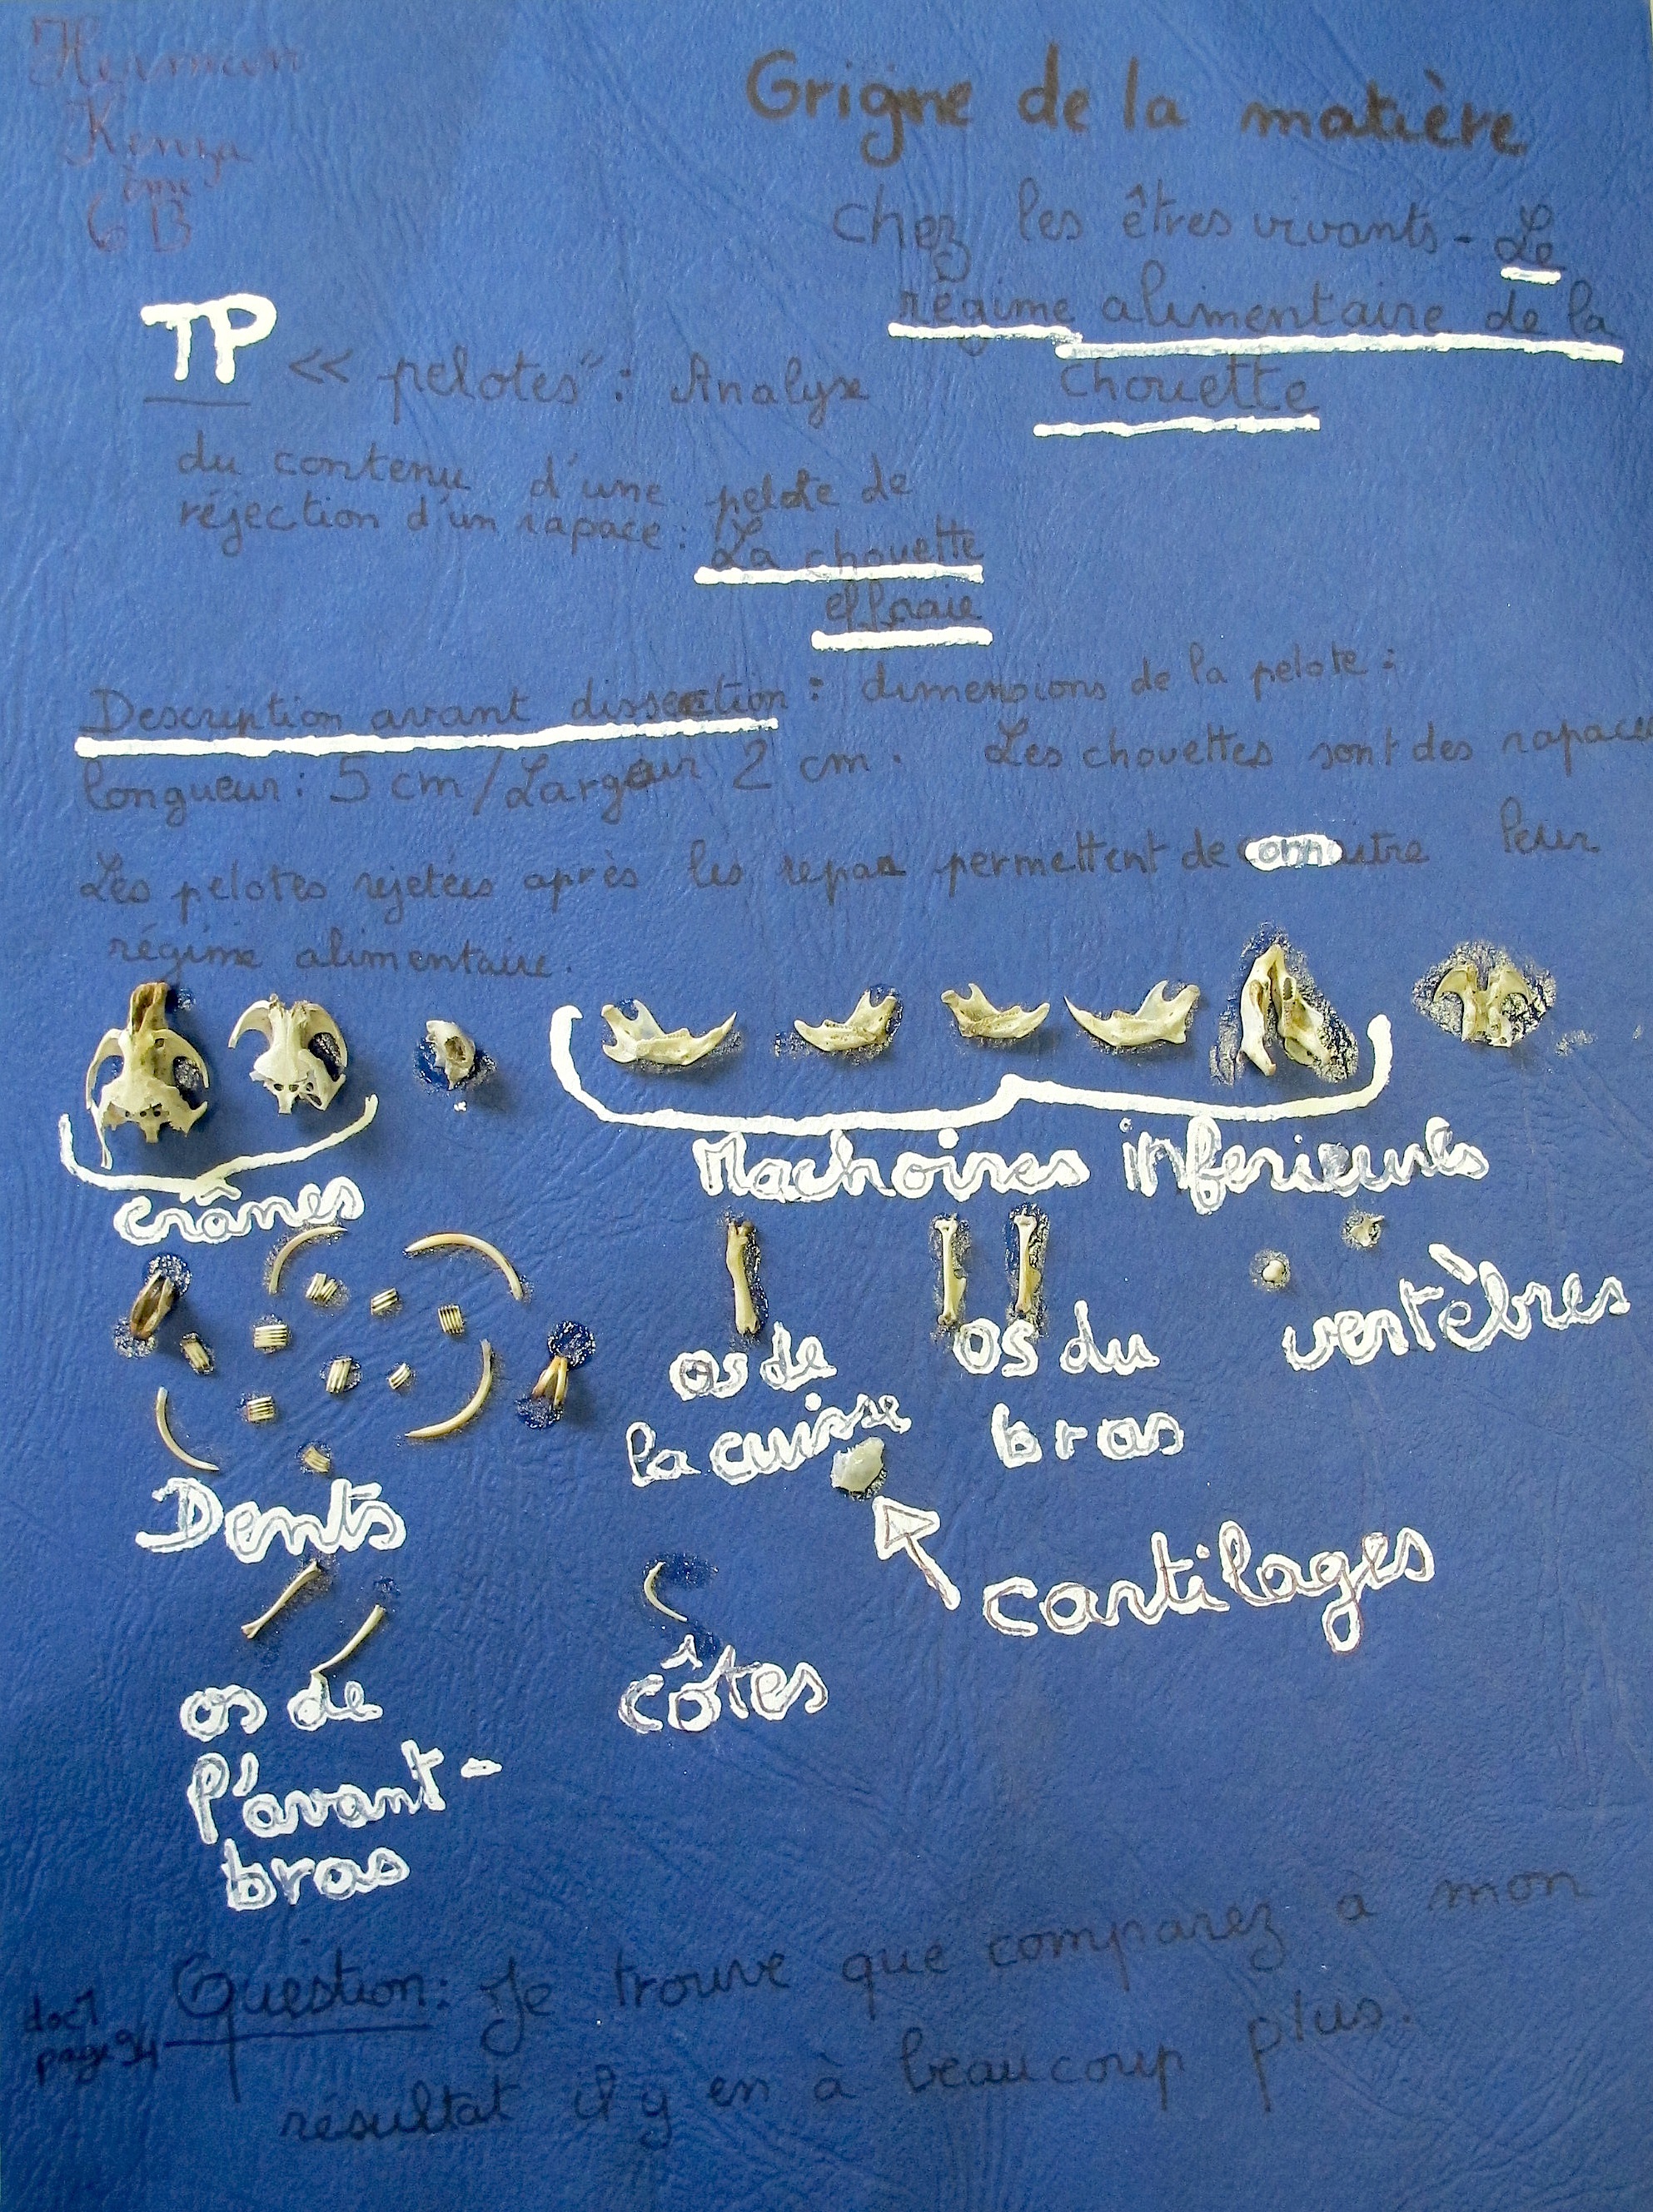 Herman
Kenza
6ème B
Grigne de la matière
chez les êtres vivants - Le
régime alimentaire de la
chouette
TP « pelotes" : Analyse
du contenu d'une pelote de
réjection d'un rapace : La chouette
effraie
Description avant dissection : dimensions de la pelote :
longueur : 5 cm / Largeur 2 cm. Les chouettes sont des rapaces
Les pelotes rejetées après les repas permettent de connaitre leur
régime alimentaire.
crânes
Machoires inferieures
Dents
os de
la cuisse
os du
bras
vertèbres
cartilages
os de
l'avant-
bras
côtes
doc1
page 94
Question : Je trouve que comparez a mon
résultat il y en à beaucoup plus.